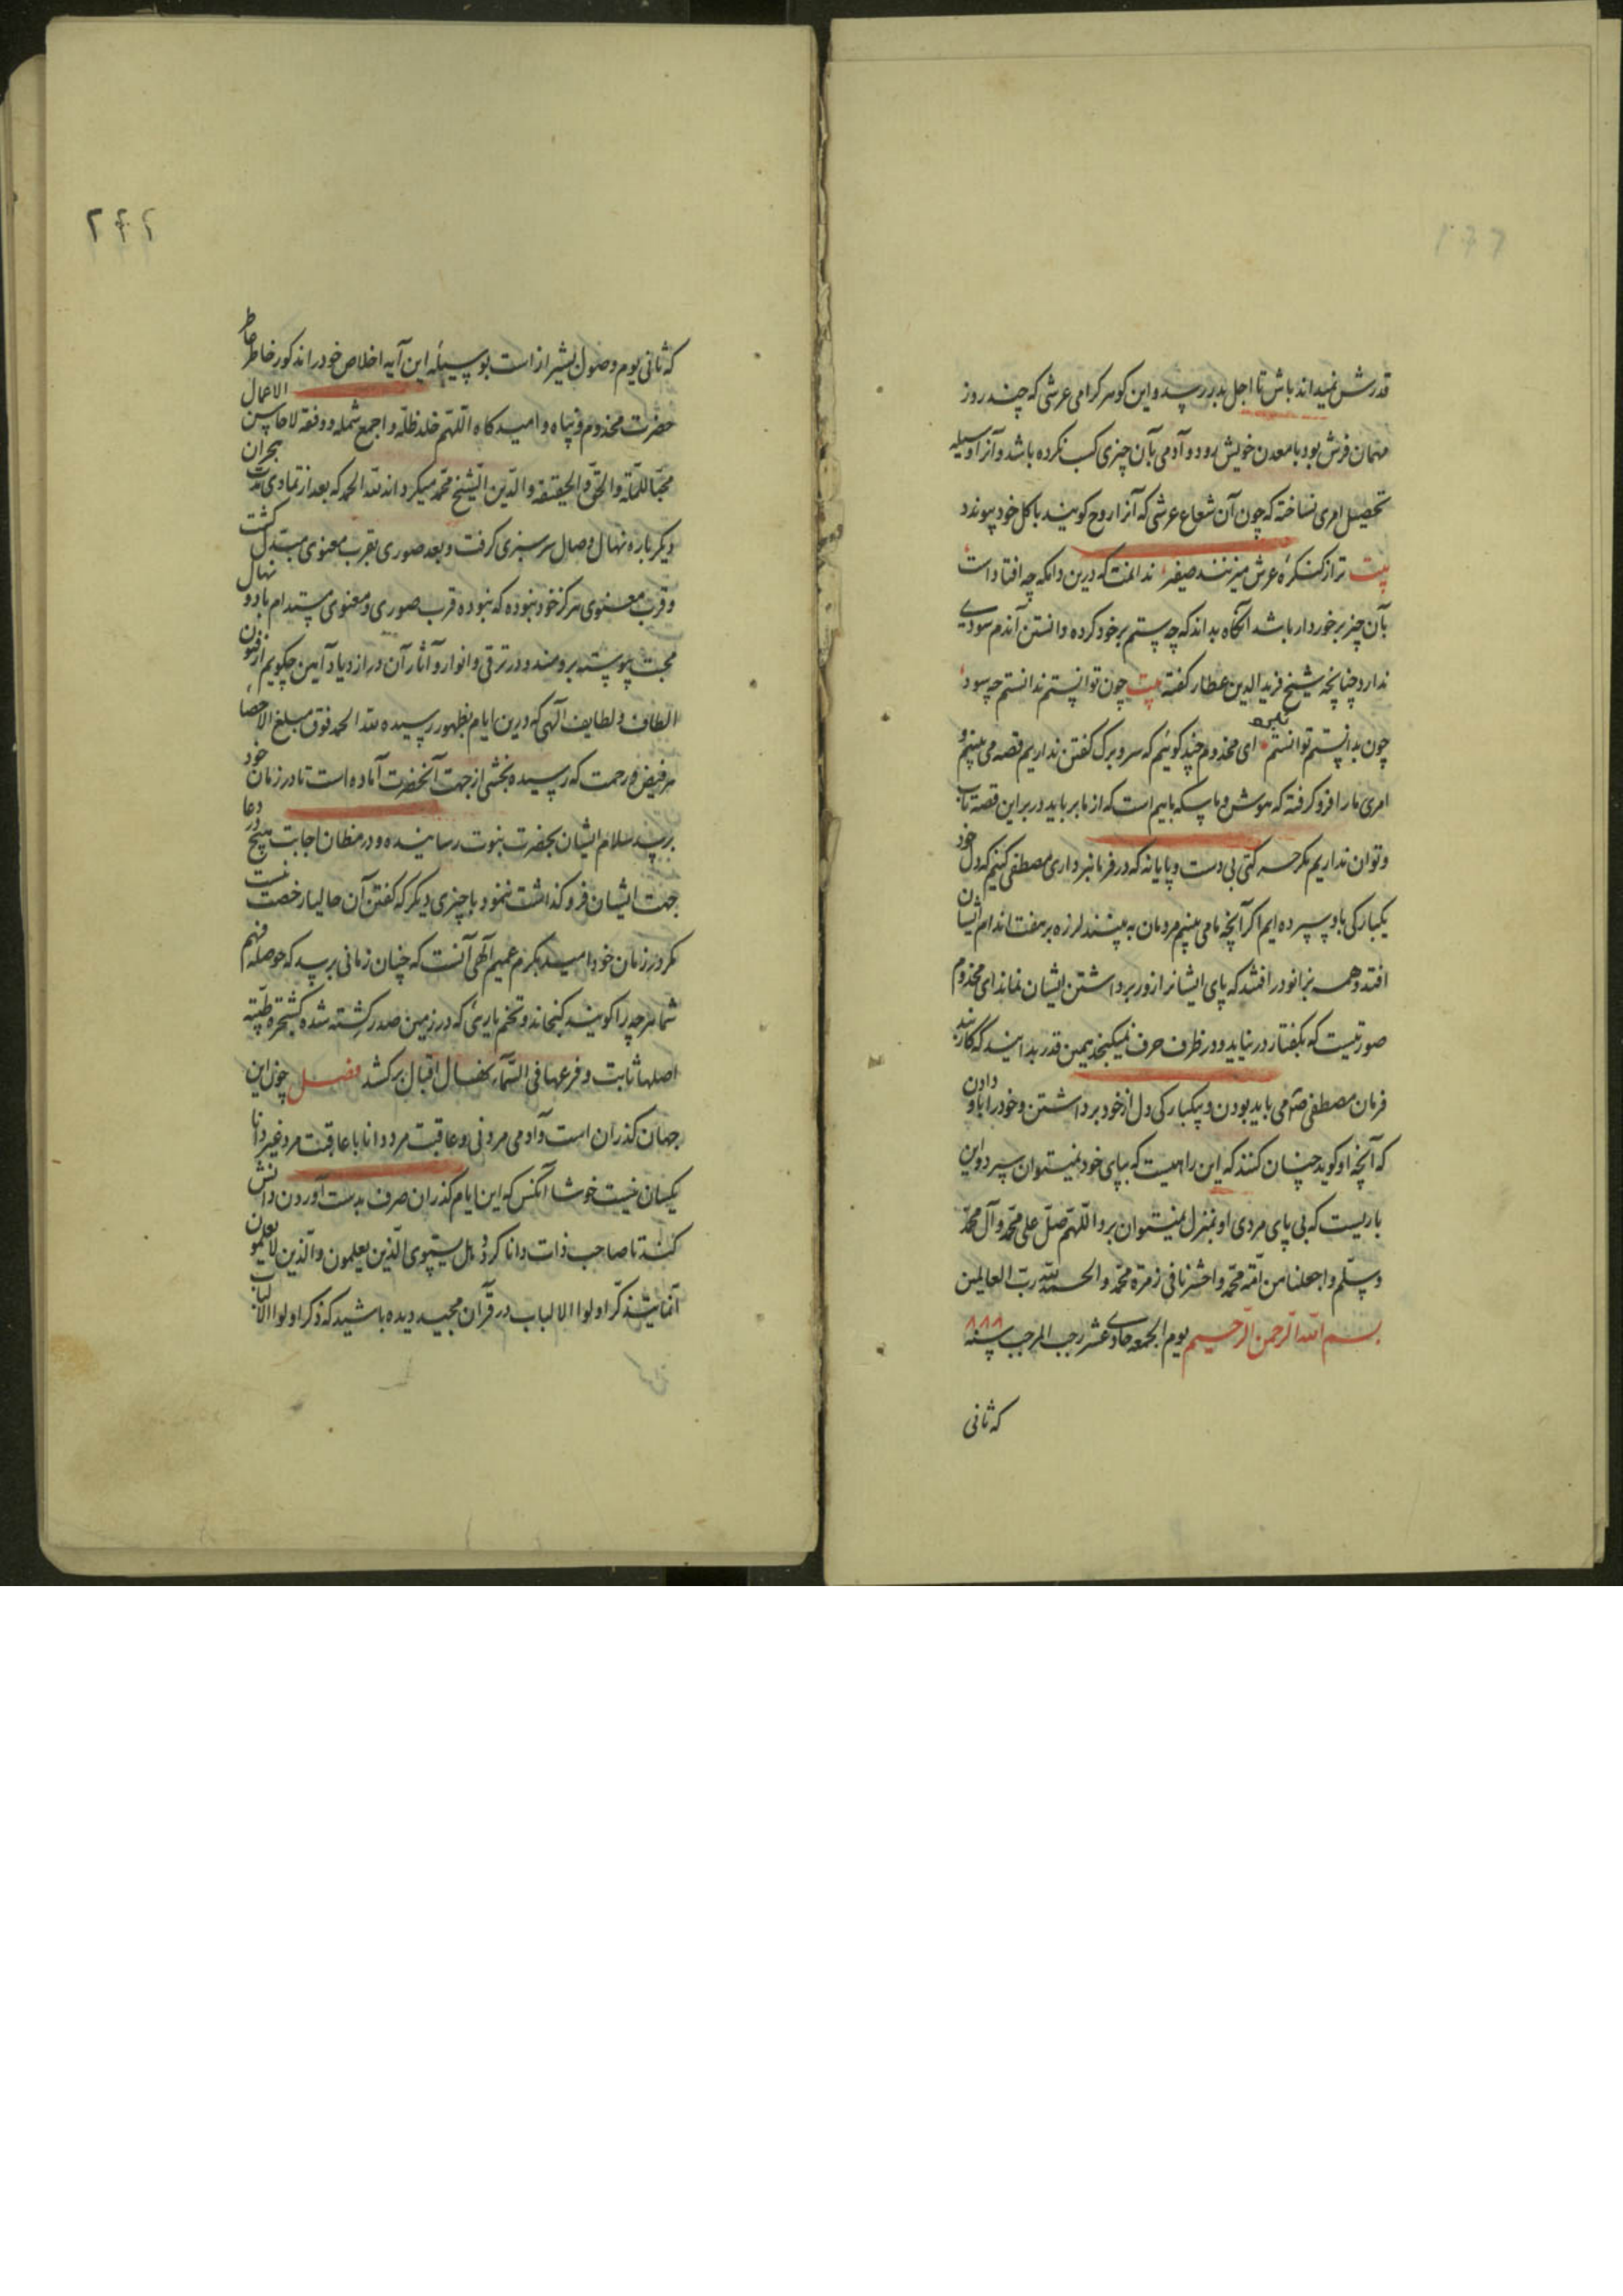 قدرش نمیداند باش تا اجل بدر رسد و این گوهر گرامی عرشی که چند روز
مهمان فرش بود با معدن خویش رود و آدمی بآن چیزی کسب نکرده باشد و آنرا وسیله
تحصیل امری نساخته که چون آن شعاع عرشی که آنرا روح گویند با کل خود پیوندد
بیت ترا ز کنگره عرش میزنند صفیر ندانمت که درین دامگه چه افتادست
بآن چیز برخوردار باشد آنگاه بداند که چه ستم بر خود کرده و دانستن آندم سودی
ندارد چنانچه شیخ فریدالدین عطار گفته بیت چون توانستم ندانستم چه سود
چون بدانستم توانستم نبود ای مخدوم چند گوئیم که سر و برگ گفتن نداریم قصه می بینیم و
امری ما را فرو گرفته که هوش و ما سکه ما بیم است که از ما برباید در بر این قصه تاب
و توان نداریم مگر حرکتی بی دست و پایانه که در فرمانبرداری مصطفی کنیم که دل خود
یکبارگی باو سپرده ایم اگر آنچه ما می بینیم مردمان به بینند لرزه بر هفت اندام ایشان
افتد و همه بزانو در افتند که پای ایشانرا زور برداشتن ایشان نماند ای مخدوم
صورتیست که بگفتار در نیاید و در ظرف حرف نمیگنجد همین قدر بدانید که کاربند
فرمان مصطفی صلعم می باید بودن و بیکبارگی دل از خود برداشتن و خود را باو دادن
که آنچه او گوید چنان کنند که این راهیست که بپای خود نمیتوان سپرد و این
باریست که بی پای مردی او بمنزل نمیتوان برد اللهم صل علی محمد و آل محمد
وسلم واجعلنا من امة محمد واحشرنا فی زمرة محمد والحمد لله رب العالمین
بسم الله الرحمن الرحیم یوم الجمعه حادی عشر رجب المرجب سنه ۸۸۸
که ثانی
۲۴۲
که ثانی یوم وصول بشیراز است بوسیله این آیه اخلاص خود را مذکور خاطر خاطر
حضرت مخدوم و پناه و امیدگاه اللهم خلد ظله واجمع شمله ووفقه لاحاسن الاعمال
محبا للملة والحق والحقیقة والدین الشیخ محمد میگرداند لله الحمد که بعد از تمادی مدت هجران
دیگر باره نهال وصال سرسبزی گرفت و بعد صوری بقرب معنوی مبتدل گشت
و قرب معنوی هرگز خود نبوده که نبوده قرب صوری و معنوی مستدام باد و نهال
محبت پیوسته برومند و در ترقی و انوار و آثار آن در ازدیاد آمین چگویم از فنون
الطاف و لطایف الهی که درین ایام بظهور رسیده لله الحمد فوق مبلغ الاحصا
هر فیض و رحمت که رسیده بخشی از جهت آنحضرت آماده است تا در زمان خود
برسد سلام ایشان بحضرت نبوت رسانیده و در مظان اجابت هیچ در دعا
جهت ایشان فرو گذاشت ننمود با چیزی دیگر که گفتن آن حالیا رخصت نیست
مگر در زمان خود امید بکرم عمیم الهی آنست که چنان زمانی برسد که حوصله فهم
شما هر چه را گویند گنجاند و تخم یاریی که در زمین صدر کشته شده کشجرة طیبة
اصلها ثابت وفرعها فی السماء نهال اقبال برکشد فصل چون این
جهان گذران است و آدمی مردنی و عاقبت مرد دانا با عاقبت مرد غیر دانا
یکسان نیست خوشا آنکس که این ایام گذران صرف بدست آوردن دانش
کند تا صاحب ذات دانا گردد هل یستوی الذین یعلمون والذین لا یعلمون
انما یتذکر اولوا الالباب در قرآن مجید دیده باشید که ذکر اولوا الالباب